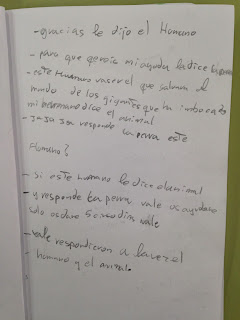 - gracias le dijo el Humano
- para que quereis mi ayuda la dice la perra
- este Humano va ser el que salvara el
mundo de los gigantes que tu
mi hermano dice el animal
- ja ja ja responde la perra este
Humano?
- si este humano le dice el animal
- y responde la perra vale os ayudare
solo os doy 5 dias vale
- vale respondieron a la vez el
- humano y el animal